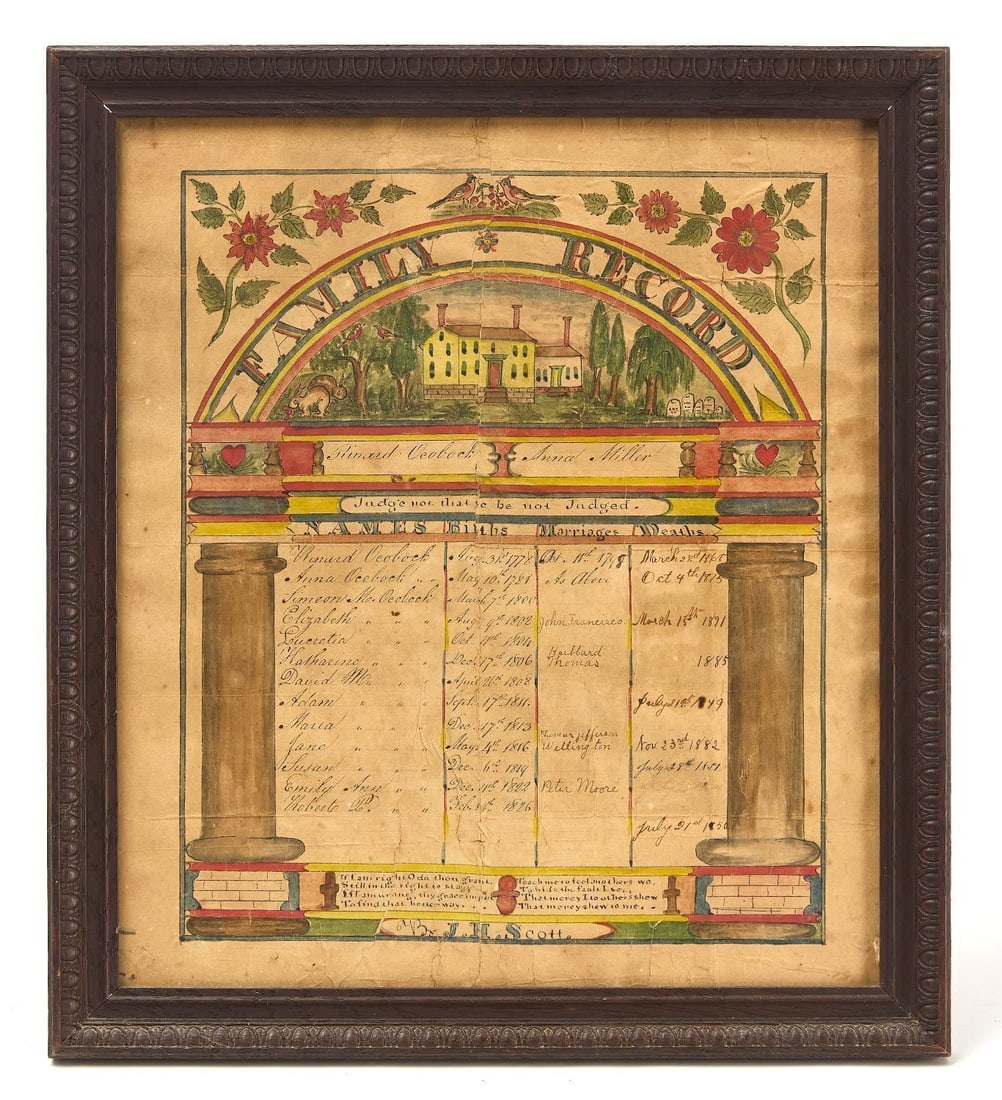 FAMILY RECORD
Kinard Ocobock Anna Miller
Judge not that ye be not Judged.
NAMES Births Marriages Deaths.
Kinard Ocobock Aug. 1778 Oct. 11th 1798 March
Anna Ocobock " " May 10th 1781 As Above Oct 4th 1815
Simeon M. Ocobock March 7th 1800
Elizabeth " " " Aug. 9th 1802 John Francisco March 15th 1891
Lucretia " " " Oct. 1804
Hubbard
Katharine " " " Dec. 17th 1806 Thomas 1885
David M. " " April 26th 1808
Adam " " " Sept. 17th 1811. July 21st 1849
Maria " " " Dec. 17th 1813
Thomas Jefferson
Jane " " " May. 4th 1816 Wellington Nov 23rd 1882
Susan " " " Dec. 6th 1819 July 28th
Emily Ann " " Dec. 1822 Peter Moore
Roberts P. " " Feb. 1826
July 21st
If I am right O do thou grant, Teach me to feel another's wo,
Still in the right to stay To hide the fault I see;
If I am wrong thy grace impart That mercy I to others shew
To find that better way. That mercy shew to me.
By J. H. Scott.